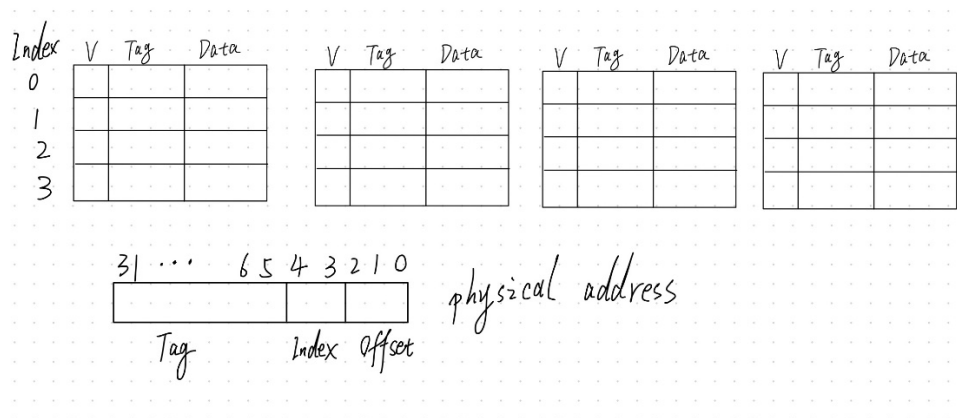 Index V Tag Data V Tag Data V Tag Data V Tag Data
0
1
2
3
31 ... 6 5 4 3 2 1 0
physical address
Tag Index Offset